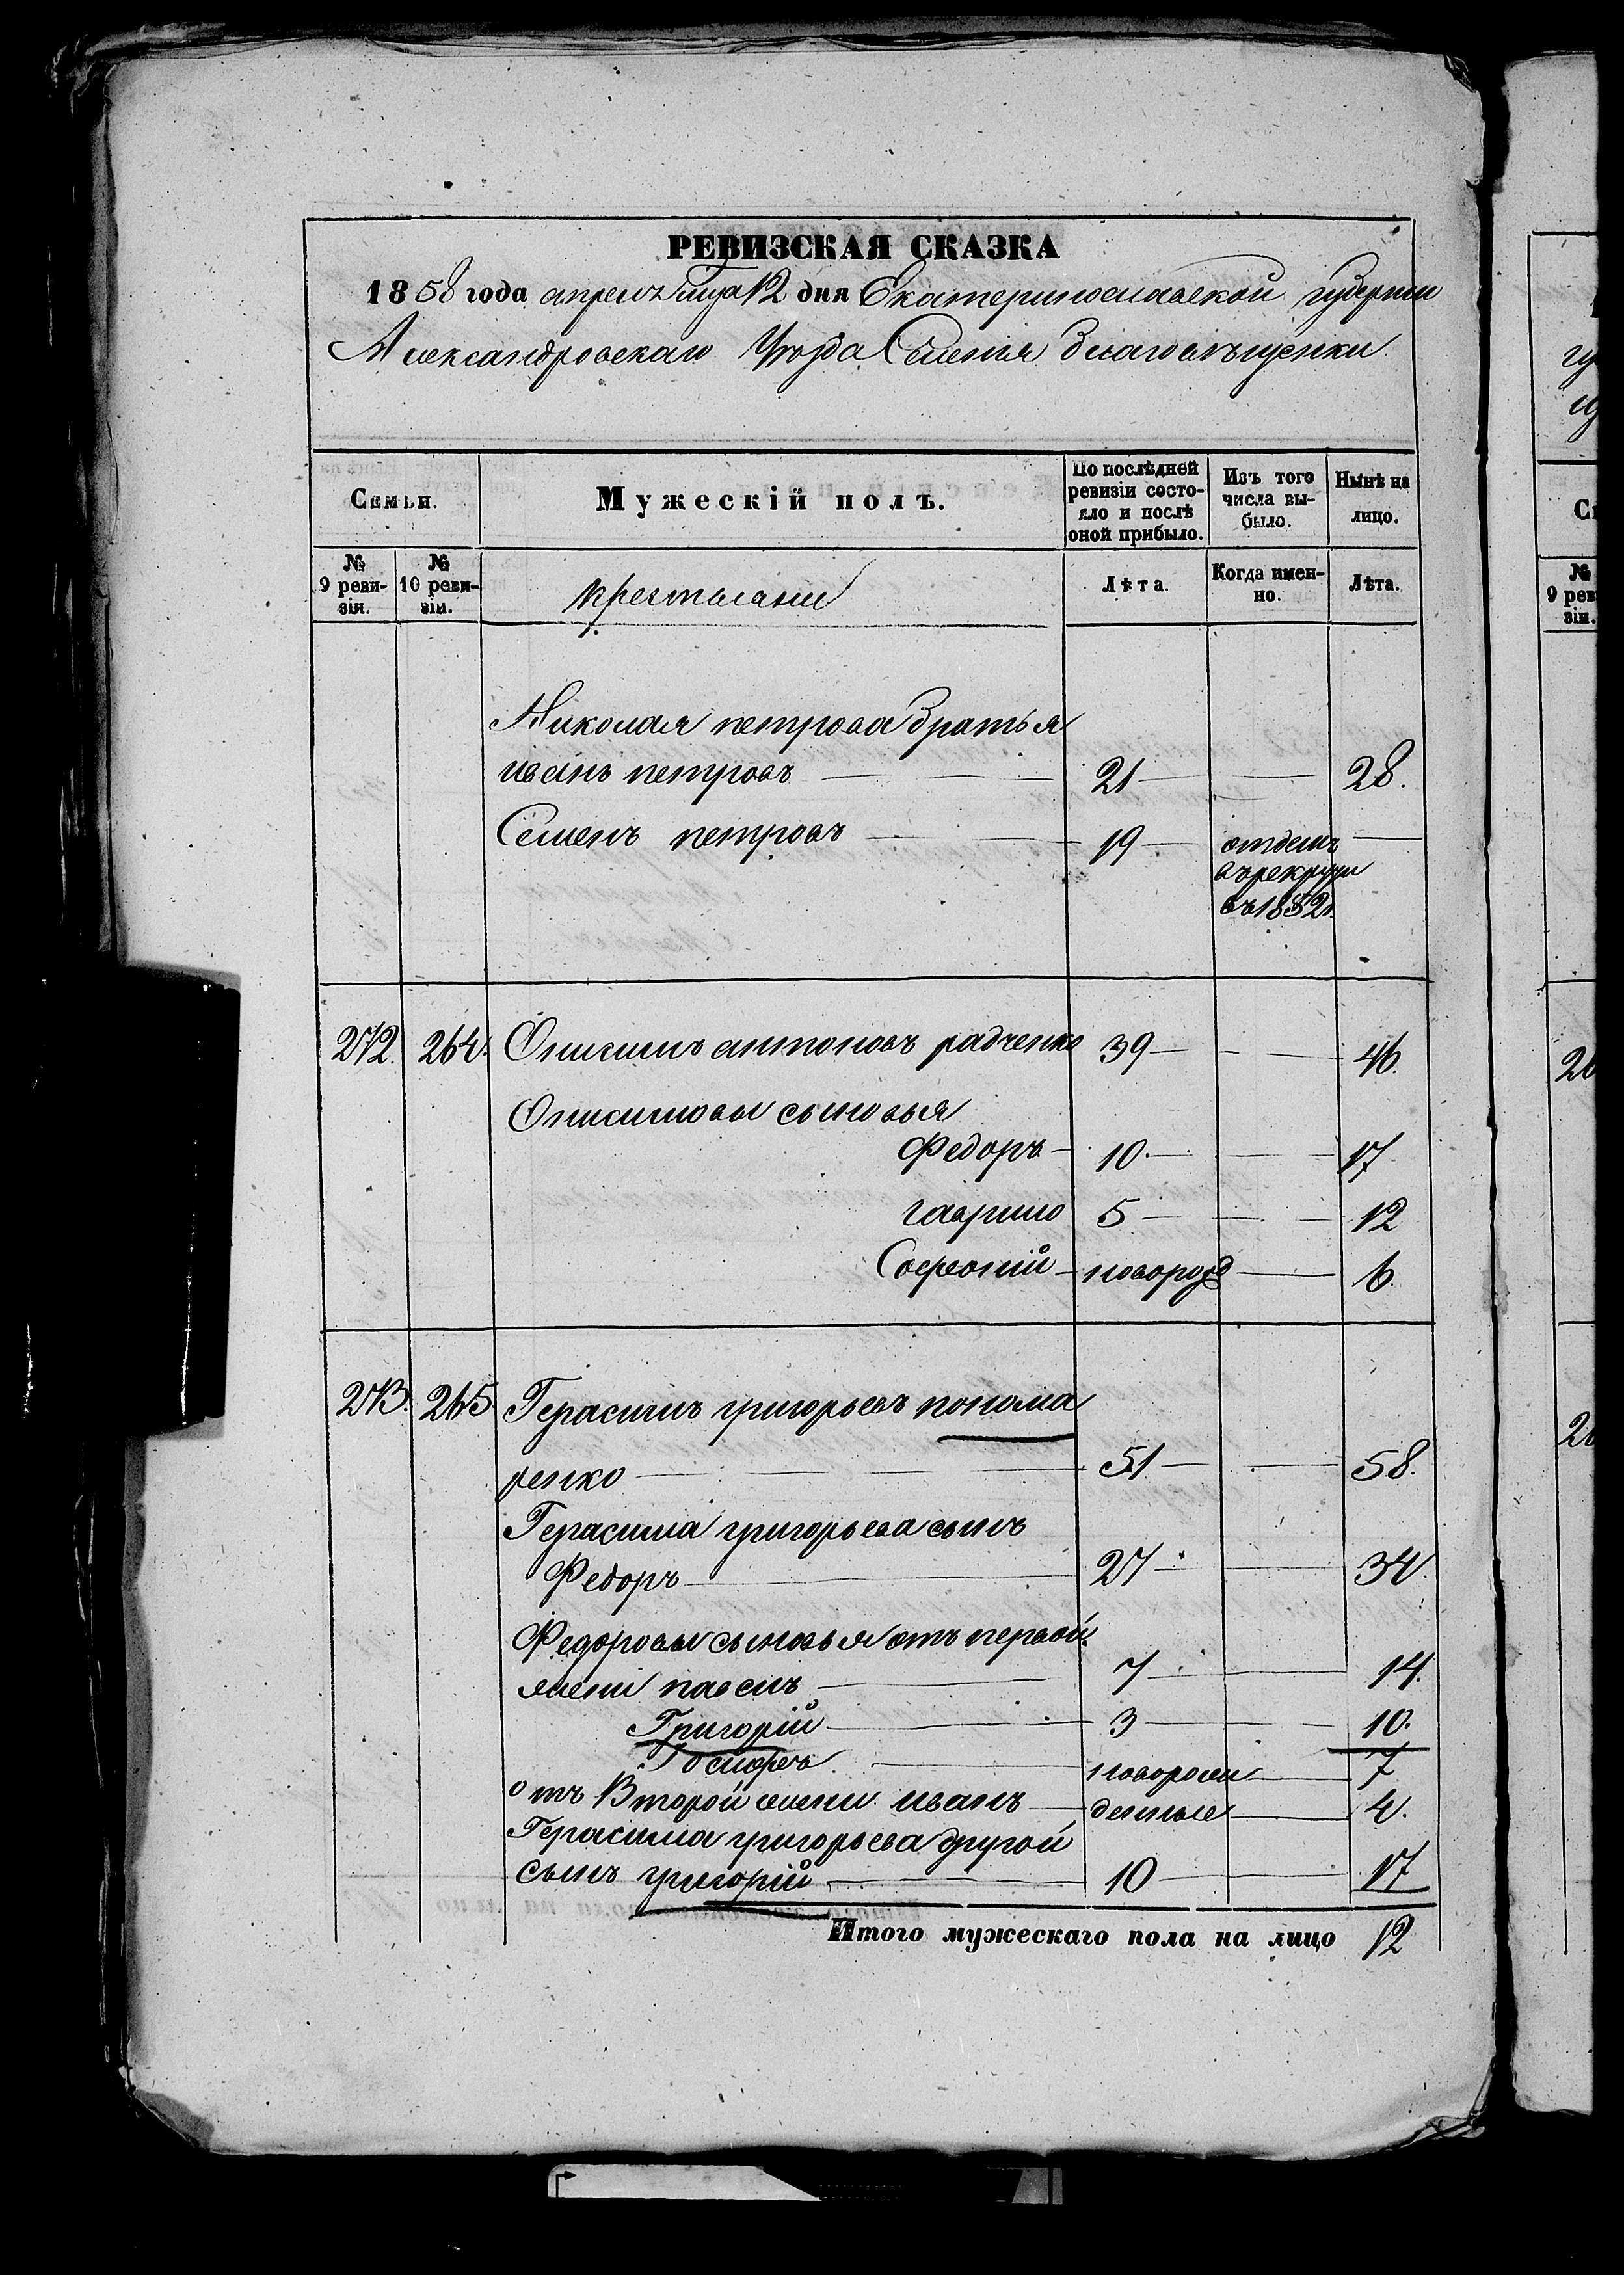 РЕВИЗСКАЯ СКАЗКА
1858 года апреля месяца 12 дня Екатеринославской губернии
Александровскаго Уезда Селенья благовещенки
Семьи.
Мужескій полъ.
По послѣдней ревизіи состояло и послѣ оной прибыло.
Изъ того числа выбыло.
Нынѣ на лицо.
№ 9 ревизіи.
№ 10 ревизіи.
крестьяни
Лѣта.
Когда именно.
Лѣта.
Николая петрова братья
иванъ петровъ 21 28.
Семенъ петровъ 19 отданъ
въ рекруты
въ 1852г.
272. 264. Онисимъ антоновъ радченко 39 46.
Онисимовы сыновья
Федоръ 10. 17
гаврило 5 12
Софроній новорожд 6.
273. 265 Герасимъ григорьевъ понома
ренко 51 58.
Герасима григорьева сынъ
Федоръ 27 34
Федоровы сыновья отъ первой
жени павелъ 7 14.
Григорій 3 10.
Іосифъ новорож 7
отъ Второй жени иванъ денные 4.
Герасима григорьева другой
сынъ григорій 10 17
Итого мужескаго пола на лицо 12
№
9 рев
зіи.